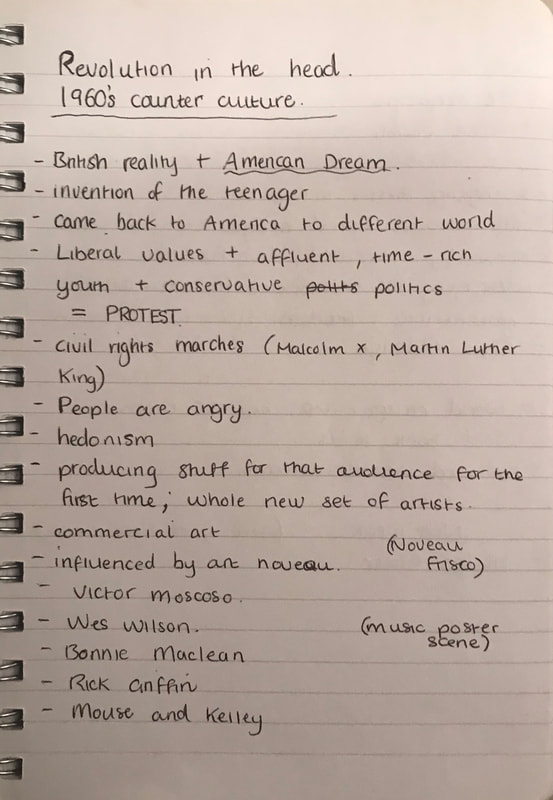 Revolution in the head.
1960's counter culture.
- British reality + American Dream.
- invention of the teenager
- came back to America to different world
- Liberal values + affluent, time-rich
youth + conservative politts politics
= PROTEST.
- civil rights marches (Malcolm x, Martin Luther
King)
- People are angry.
- hedonism
- producing stuff for that audience for the
first time; whole new set of artists.
- commercial art
- influenced by art noveau. (Noveau
Frisco)
- Victor moscoso.
- Wes Wilson. (music poster
scene)
- Bonnie Maclean
- Rick Griffin
- Mouse and Kelley